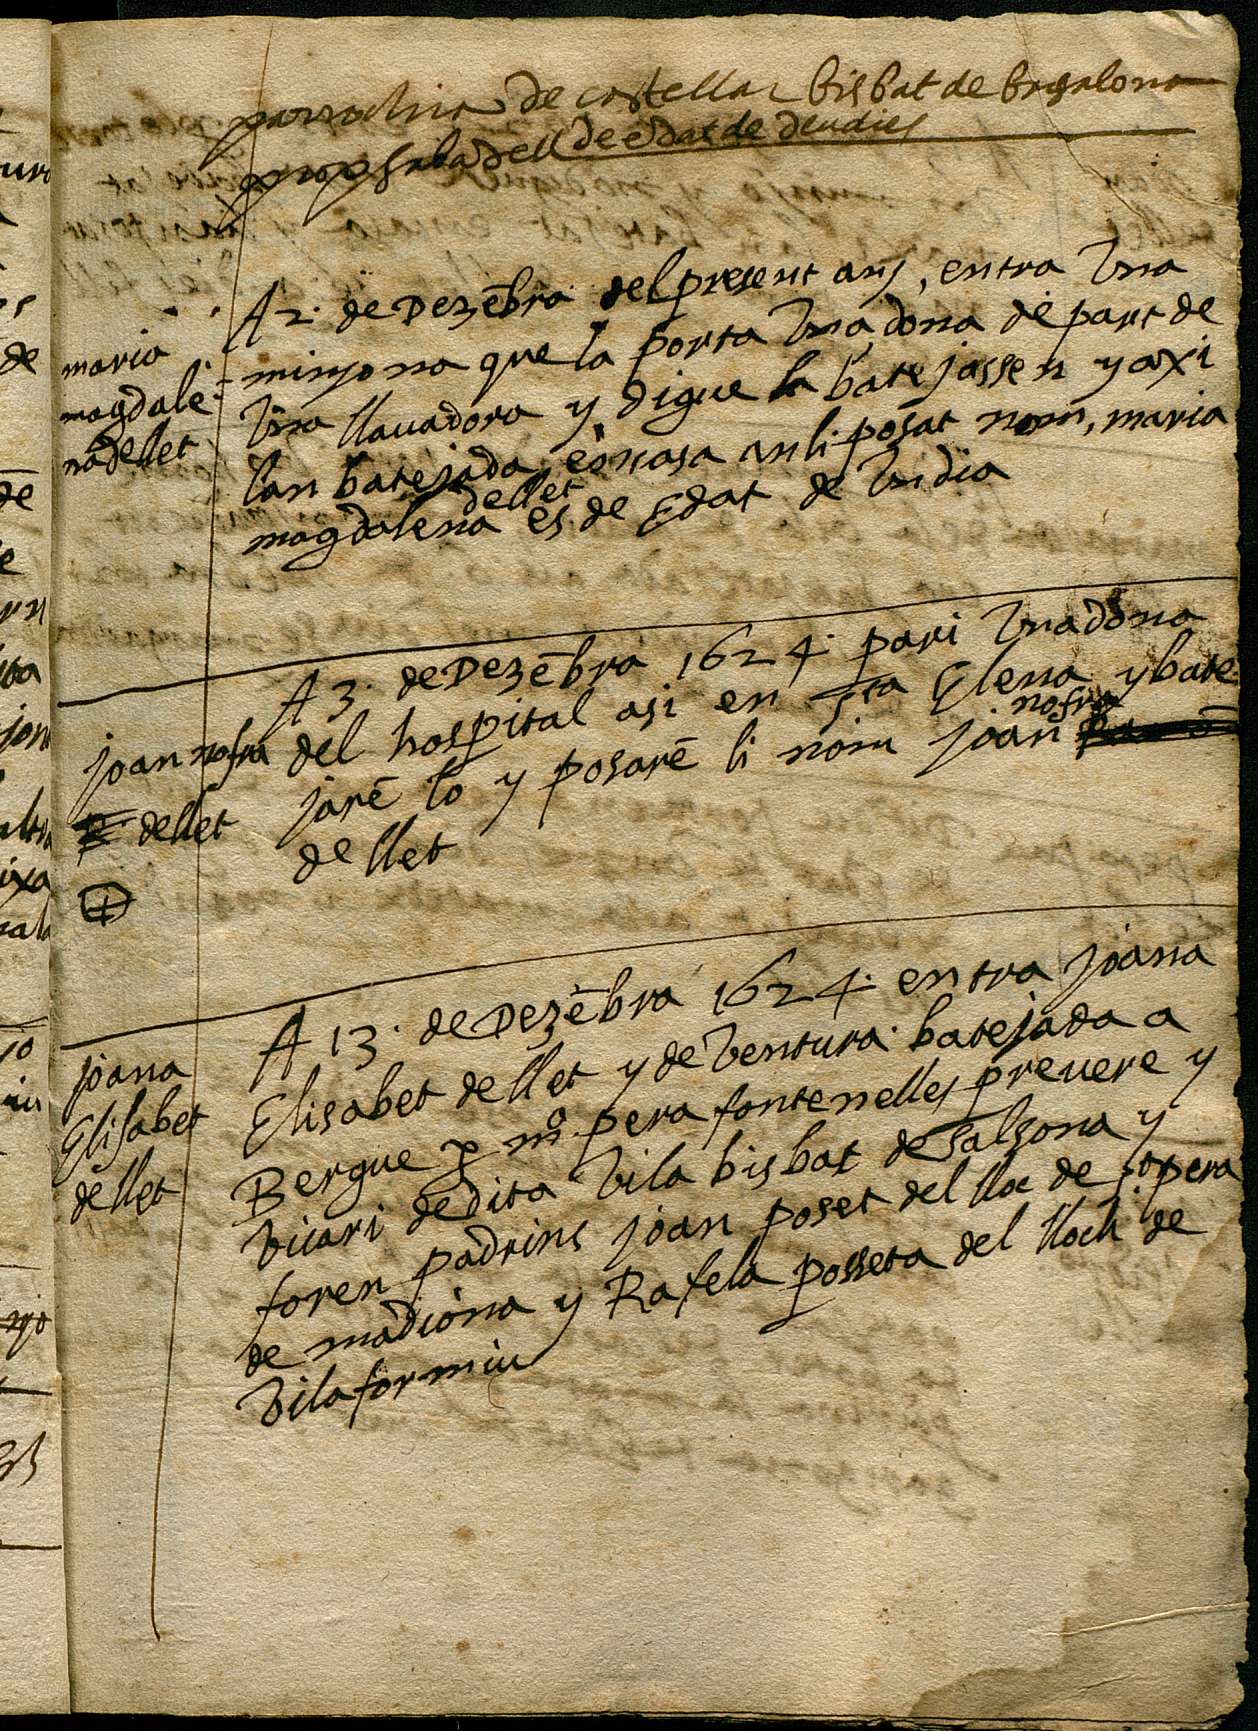 parrochia de castellar bisbat de barsalona
prop sabadell de edat de deu dies
A 2. de Dezẽbra del present anj, entra una
maria
minyona que la porta una dona de part de
magdale-
una llauadora y digue la batejassen y axi
na dellet
lan batejada, en casa an li posat nom, maria
magdalena dellet es de Edat de un dia
A 3. de Dezẽbra 1624. pari una dona
joan nofra
del hospital asi en sta Elena y bate
dellet
jarẽ lo y posarẽ li nom joan nofra
de llet
A 13. de Dezẽbra 1624. entra joana
joana
Elisabet de llet y de Ventura. batejada a
Elisabet
Bergue p mº. pera fontenelles preuere y
de llet
vicari de dita vila bisbat de salsona y
foren padrins joan poset del lloc de sopera
de madiona y Rafela posseta del lloch de
vilaformiu